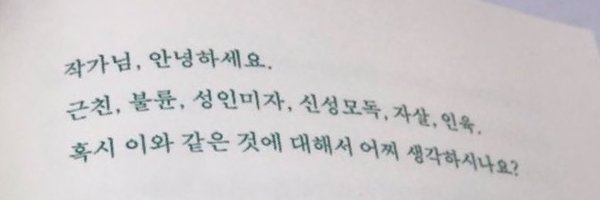 작가님, 안녕하세요.
근친, 불륜, 성인미자, 신성모독, 자살, 인육.
혹시 이와 같은 것에 대해서 어찌 생각하시나요?